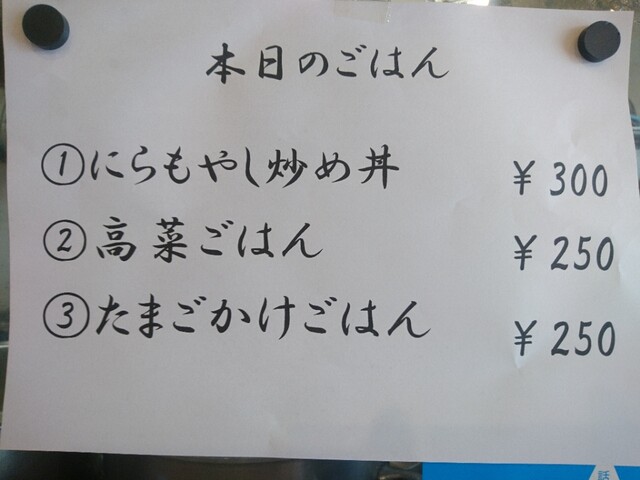 本日のごはん
①にらもやし炒め丼 ¥300
②高菜ごはん ¥250
③たまごかけごはん ¥250
話